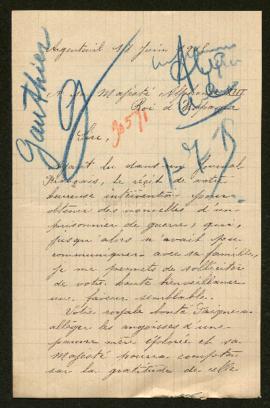 Argenteuil 17 Juin
A Sa Majesté Alphonse XIII
Roi d'Espagne
Gauthier
9
30571
Sire,
Ayant lu dans un Journal
Français, le récit de votre
heureuse intervention pour
obtenir des nouvelles d'un
prisonnier de guerre, qui,
jusqu'alors n'avait peu
communiquer avec sa famille,
je me permets de solliciter
de votre haute bienveillance
une faveur semblable.
Votre royale bonté daignera
alléger les angoisses d'une
pauvre mère éplorée et sa
Majesté pourra compter
sur la gratitude de celle